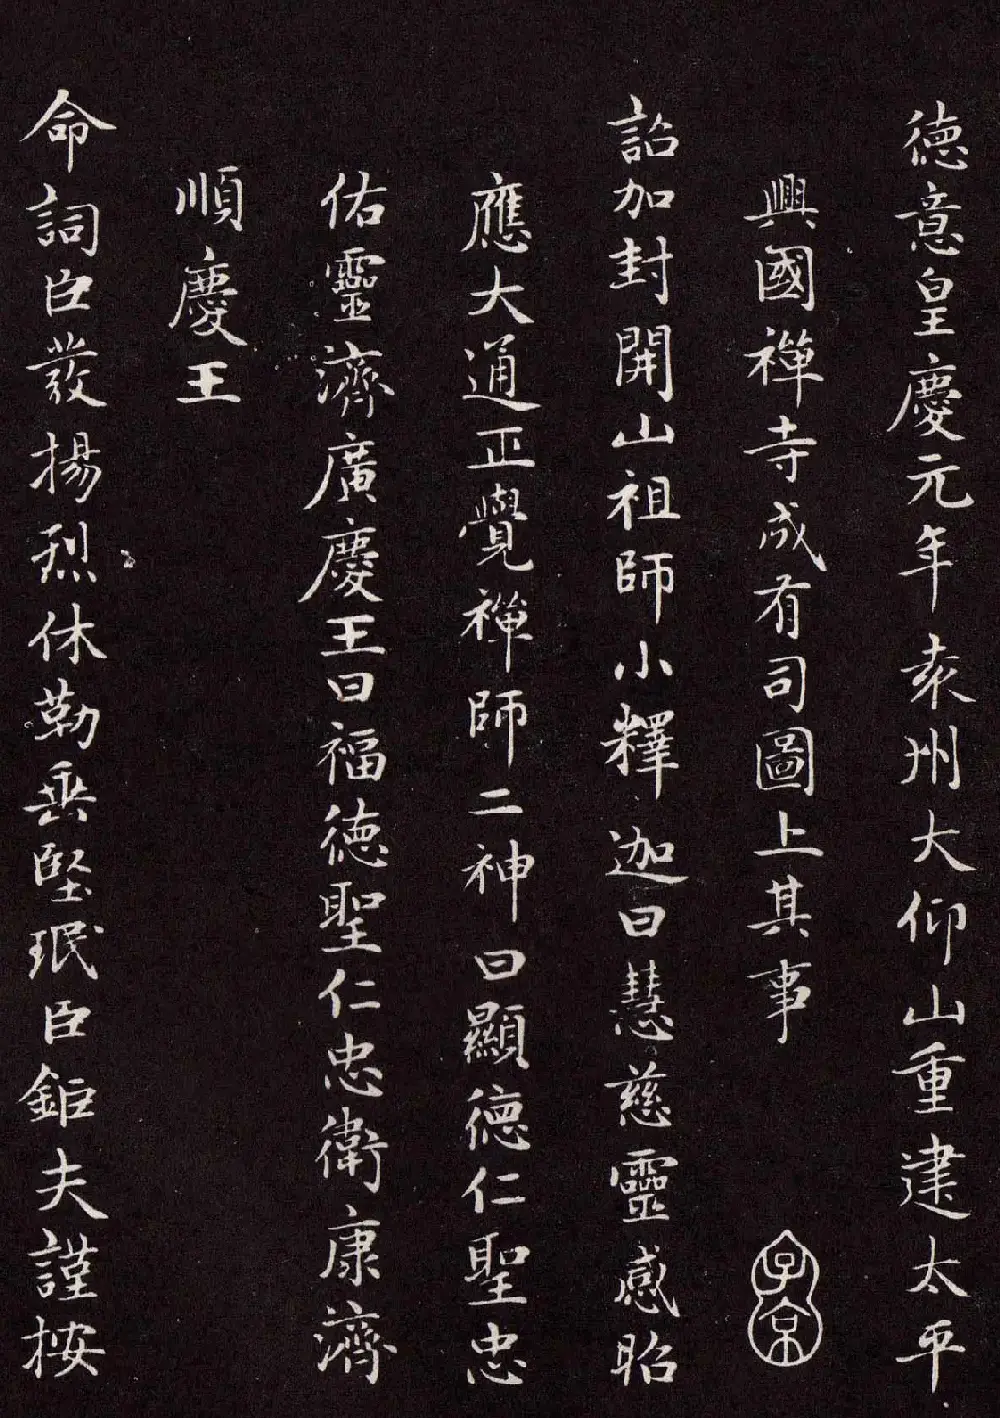 德意皇慶元年袁州大仰山重建太平
興國禪寺成有司圖上其事
子京
詔加封開山祖師小釋迦曰慧慈靈感昭
應大通正覺禪師二神曰顯德仁聖忠
佑靈濟廣慶王曰福德聖仁忠衛康濟
順慶王
命詞臣發揚烈休勒垂堅珉臣鉅夫謹按